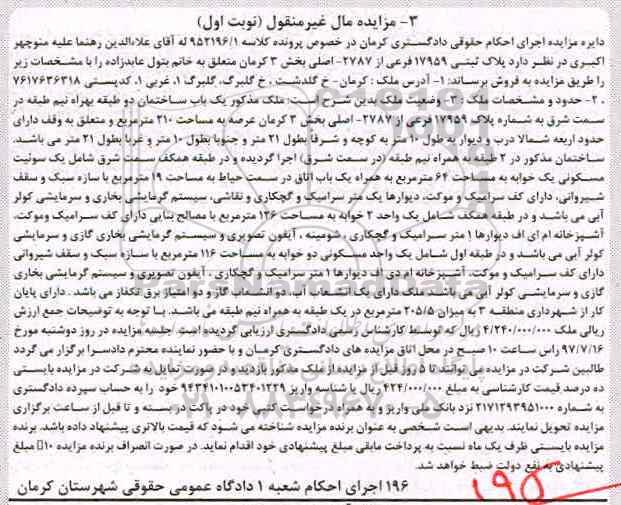 ۳- مزایده مال غیرمنقول (نوبت اول)
دایره مزایده اجرای احکام حقوقی دادگستری کرمان در خصوص پرونده کلاسه ۹۵۲۱۹۶/۱ له آقای علاءالدین رهنما علیه منوچهر
اکبری در نظر دارد پلاک ثبتی ۱۷۹۵۹ فرعی از ۲۷۸۷- اصلی بخش ۳ کرمان متعلق به خانم بتول عابدزاده را با مشخصات زیر
را طریق مزایده به فروش برساند: ۱- آدرس ملک: کرمان- خ گلدشت، خ گلبرگ، گلبرگ ۱، غربی ۱، کدپستی ۷۶۱۷۶۳۶۳۱۸
. ۲- حدود و مشخصات ملک: ۳- وضعیت ملک بدین شرح است: ملک مذکور یک باب ساختمان دو طبقه بهراه نیم طبقه در
سمت شرق به شماره پلاک ۱۷۹۵۹ فرعی از ۲۷۸۷- اصلی بخش ۳ کرمان عرصه به مساحت ۲۱۰ مترمربع و متعلق به وقف دارای
حدود اربعه شمالا درب و دیوار به طول ۱۰ متر به کوچه و شرقا بطول ۲۱ متر و جنوبا بطول ۱۰ متر و غربا بطول ۲۱ متر می باشد.
ساختمان مذکور در ۲ طبقه به همراه نیم طبقه (در سمت شرق) اجرا گردیده و در طبقه همکف سمت شرق شامل یک سوئیت
مسکونی یک خوابه به مساحت ۶۴ مترمربع به همراه یک باب اتاق در سمت حیاط به مساحت ۱۹ مترمربع با سازه سبک و سقف
شیروانی، دارای کف سرامیک و موکت، دیوارها یک متر سرامیک و گچکاری و نقاشی، سیستم گرمایشی بخاری و سرمایشی کولر
آبی می باشد و در طبقه همکف شامل یک واحد ۲ خوابه به مساحت ۱۳۶ مترمربع با مصالح بنایی دارای کف سرامیک وموکت،
آشپزخانه ام ای اف دیوارها ۱ متر سرامیک و گچکاری ، شومینه ، آیفون تصویری و سیستم گرمایشی بخاری گازی و سرمایشی
کولر آبی می باشد و در طبقه اول شامل یک واحد مسکونی دو خوابه به مساحت ۱۱۶ مترمربع با سازه سبک و سقف شیروانی
دارای کف سرامیک و موکت، آشپزخانه ام دی اف دیوارها ۱ متر سرامیک و گچکاری ، آیفون تصویری و سیستم گرمایشی بخاری
گازی و سرمایشی کولر آبی می باشد ملک دارای یک انشعاب آب، دو انشعاب گاز و دو امتیاز برق تکفاز می باشد . دارای پایان
کار از شهرداری منطقه ۳ به میزان ۲۰۵/۵ مترمربع در یک طبقه به همراه نیم طبقه می باشد. با توجه به توضیحات جمع ارزش
ریالی ملک ۴/۲۴۰/۰۰۰/۰۰۰ ریال که توسط کارشناس رسمی دادگستری ارزیابی گردیده است جلسه مزایده در روز دوشنبه مورخ
۹۷/۷/۱۶ راس ساعت ۱۰ صبح در محل اتاق مزایده های دادگستری کرمان و با حضور نماینده محترم دادسرا برگزار می گردد
طالبین شرکت در مزایده می توانند تا ۵ روز قبل از مزایده از ملک مذکور بازدید و در صورت تمایل به شرکت در مزایده بایستی
ده درصد قیمت کارشناسی به مبلغ ۴۲۴/۰۰۰/۰۰۰ ریال با شناسه واریز ۹۴۳۴۱۰۱۰۰۵۳۴۰۱۲۲۹ خود را به حساب سپرده دادگستری
به شماره ۲۱۷۱۲۹۳۹۵۱۰۰۰ نزد بانک ملی واریز و به همراه درخواست کتبی خود در پاکت دربسته و تا قبل از ساعت برگزاری
مزایده تحویل نمایند. بدیهی است شخصی به عنوان برنده مزایده شناخته می شود که قیمت بالاتری پیشنهاد داده باشد. برنده
مزایده بایستی ظرف یک ماه نسبت به پرداخت مابقی مبلغ پیشنهادی خود اقدام نماید. در صورت انصراف برنده مزایده ۱۰ مبلغ
پیشنهادی به نفع دولت ضبط خواهد شد.
۱۹۶ اجرای احکام شعبه ۱ دادگاه عمومی حقوقی شهرستان کرمان
۱۹۵